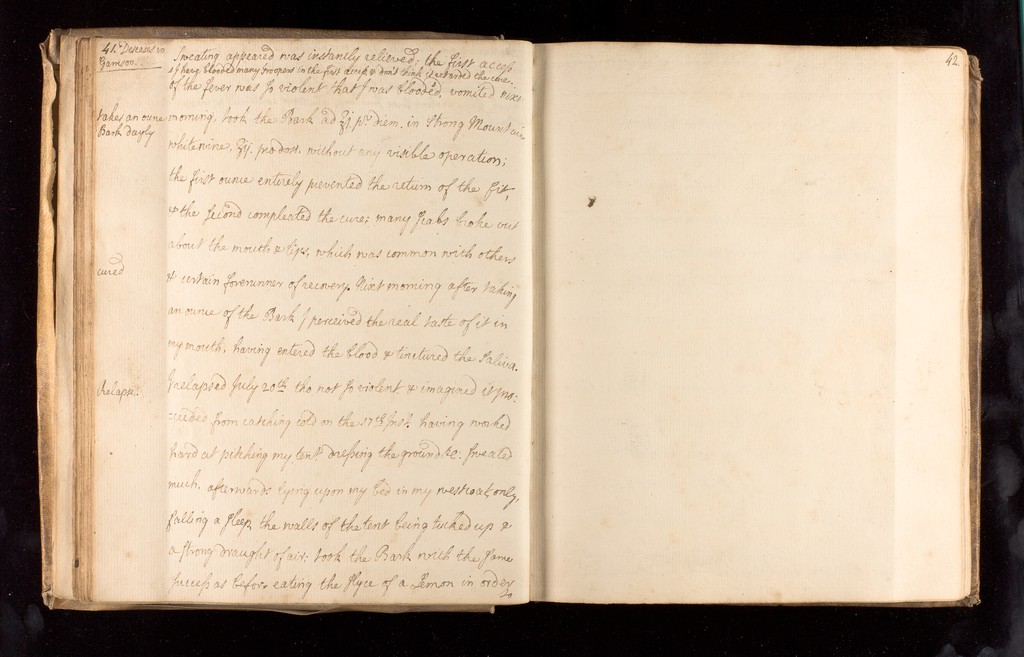 41. Diseases in
Garrison.
Sweating appeared was instantly relieved; the first access
I have blooded many troopers in the first access & don't think it retarded the cure.
of the fever was so violent that I was blooded, vomited next
takes an ounce
Bark dayly
morning, took the Bark ad ℥j pr. diem. in Strong Mountain
white wine. ʒij. pro dos. without any visible operation;
the first ounce entirely prevented the return of the fit,
& the second compleated the cure; many scabs broke out
about the mouth & lips, which was common with others
cured
& certain forerunner of recovery. Next morning after taking
an ounce of the Bark I perceived the real taste of it in
my mouth, having entered the blood & tinctured the Saliva.
Relapse.
I relapsed July 20th. tho not so violent & imagined it pro:
:ceeded from catching cold on the 17th. inst. having worked
hard at pitching my tent dressing the ground &c. Sweated
much. afterwards lying upon my bed in my westcoat only,
falling a sleep, the walls of the tent being tucked up &
a strong draught of air; took the Bark with the same
success as before eating the slyce of a Lemon in order
to
42.